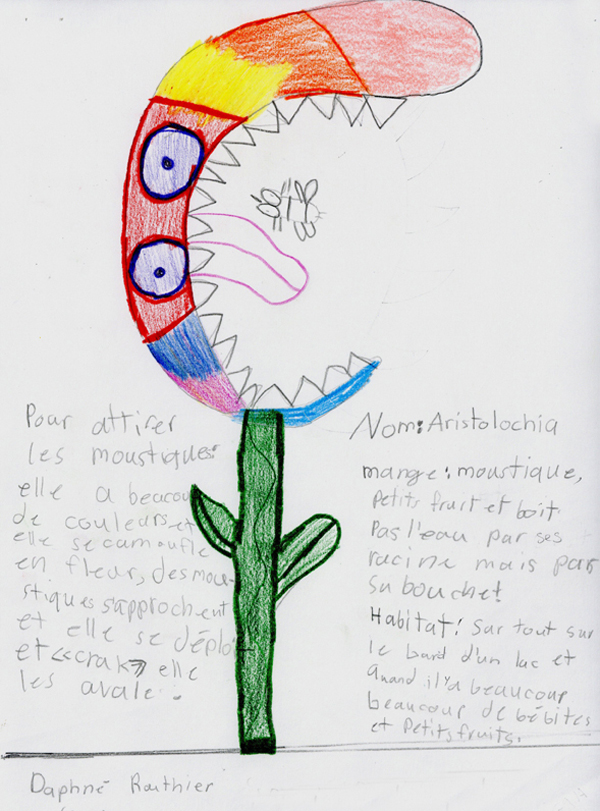 Pour attirer
les moustiques
elle a beacou
de couleurs et
elle se camoufle
en fleur, des mou-
stiques s'approchent
et elle se déploi
et «crak» elle
les avale.
Nom: Aristolochia
mange: moustique,
petits fruit et boit
Pas l'eau par ses
racine mais par
sa bouche!
Habitat: Sur tout sur
le bard d'un lac et
quand il y a beaucoup
beaucoup de bébites
et petits fruits.
Daphné Routhier